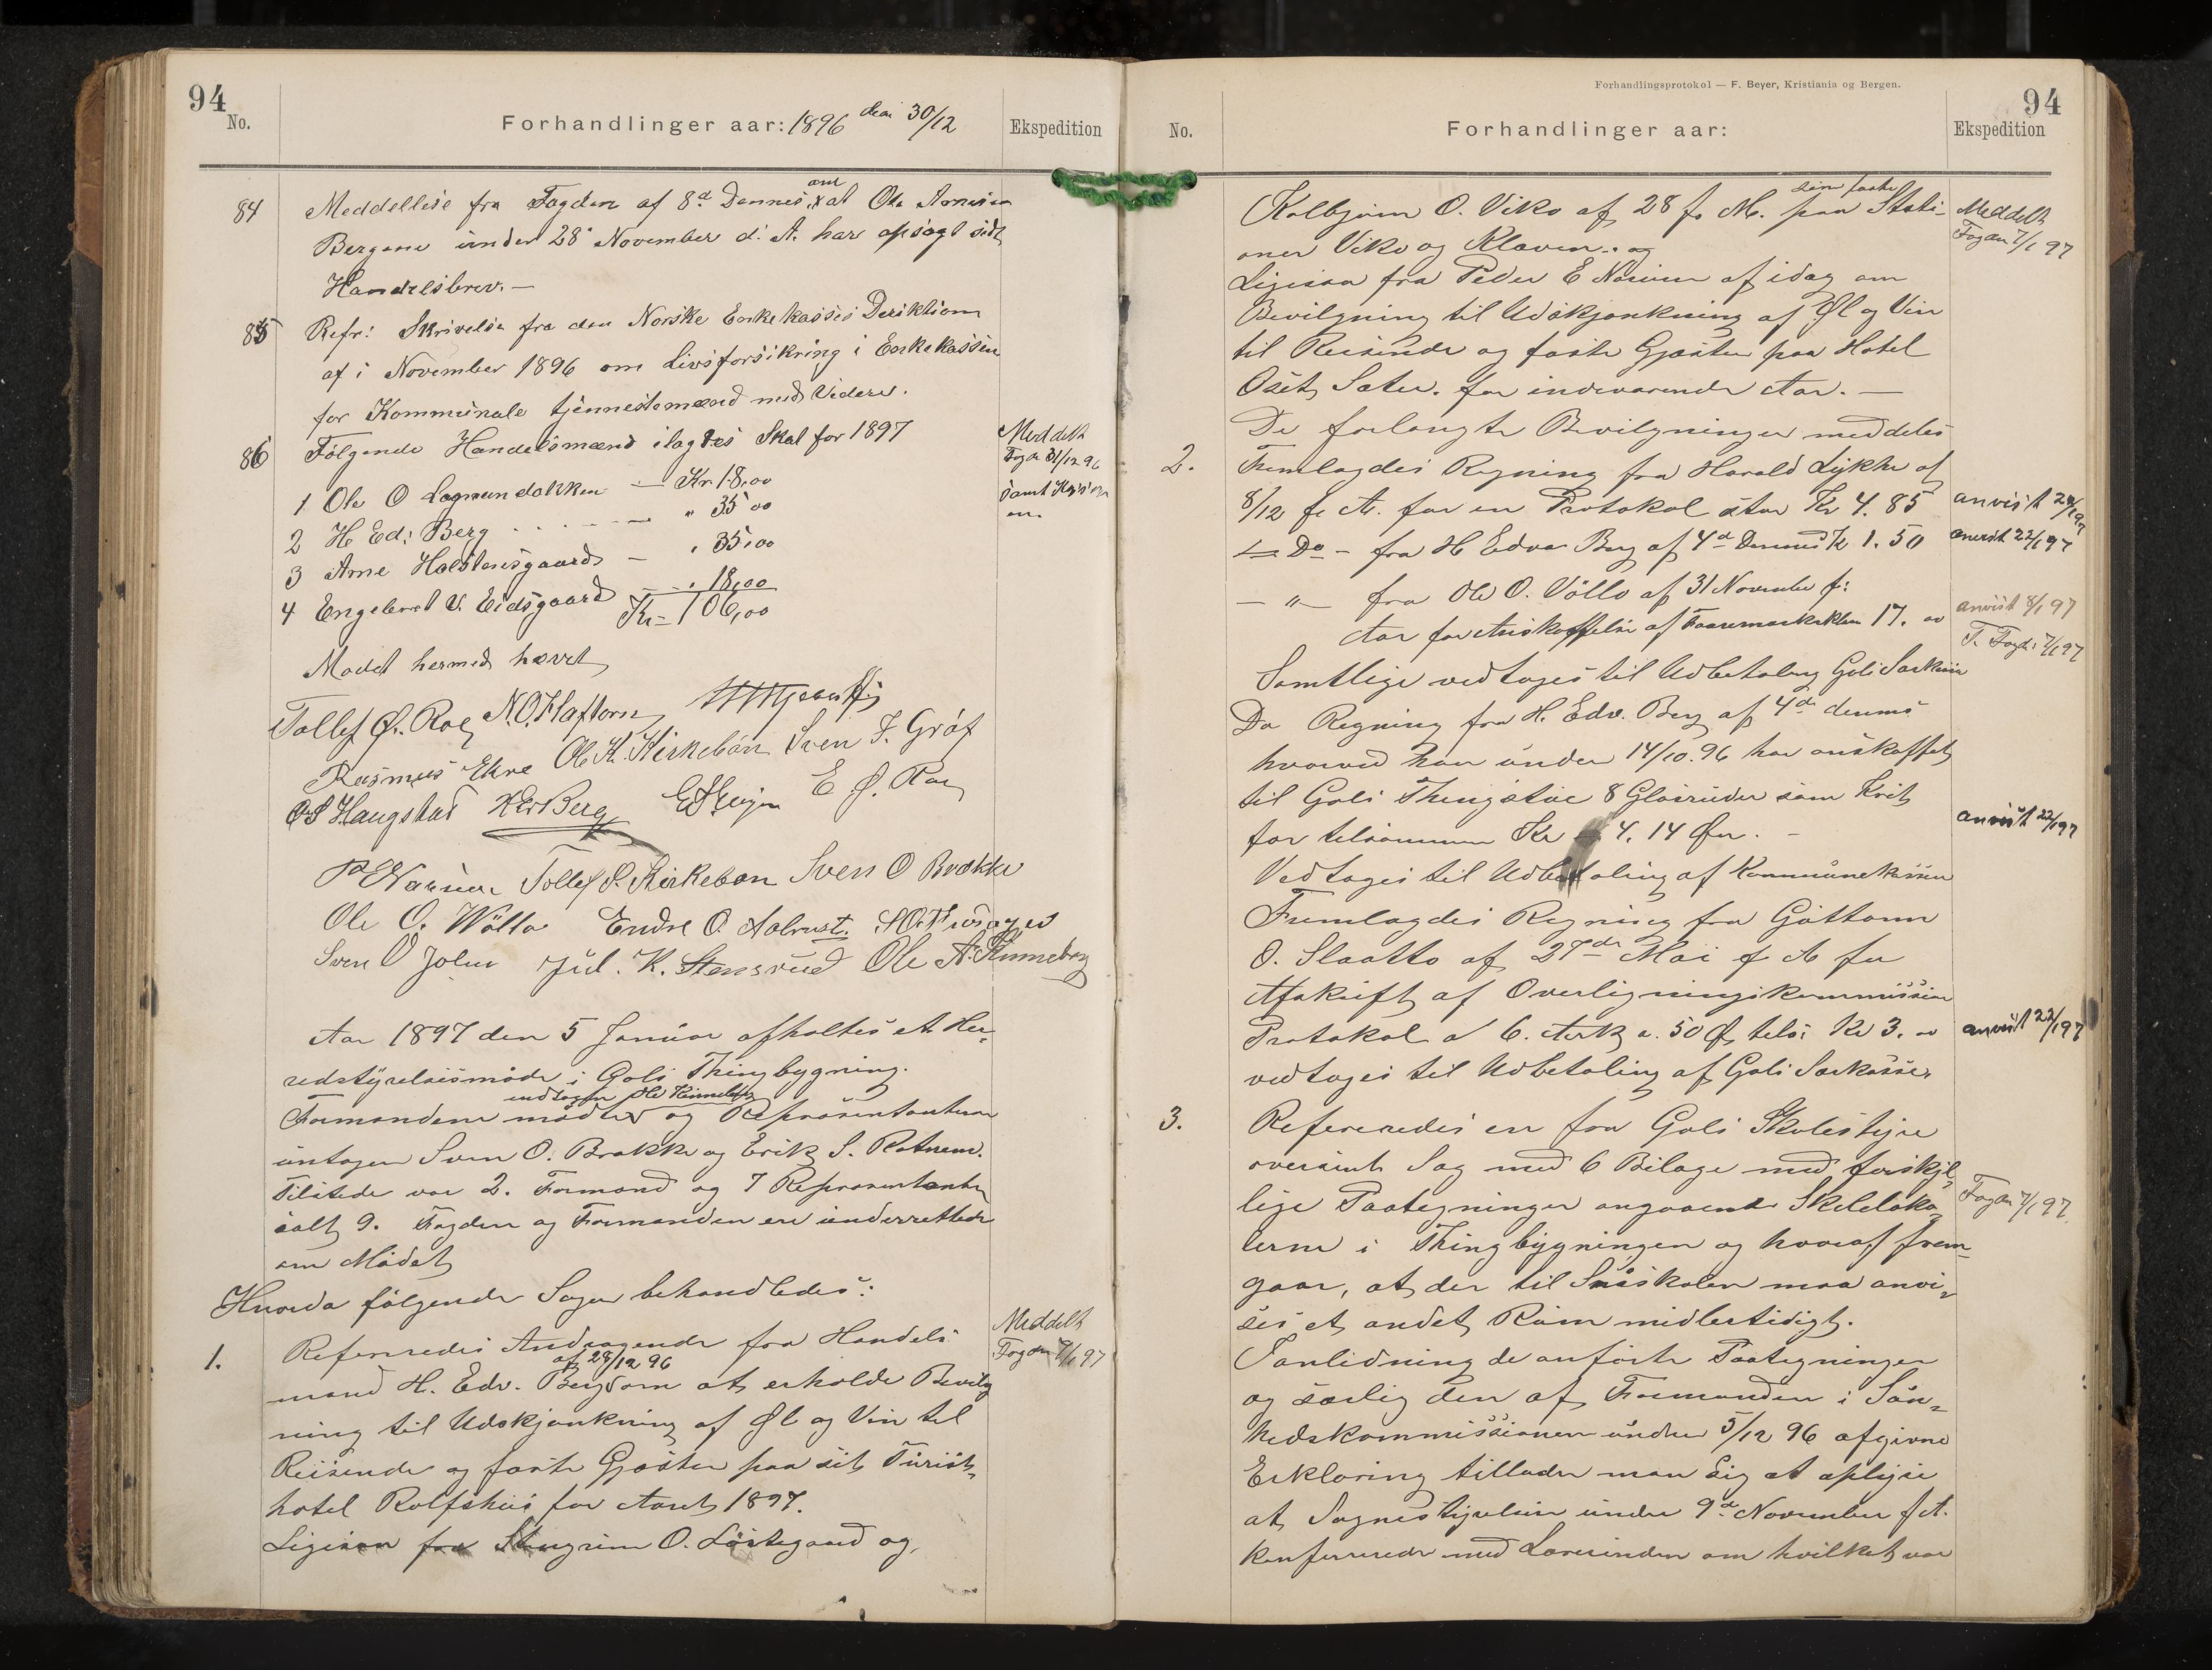 94
No.
Forhandlinger aar: 1896 den 30/12
Ekspedition
84 Meddellese fra Fogden af 8d Dennes om at Ole Arnesen
Bergene under 28' November d. A. har opsagt sidt
Handelsbrev. —
85 Refr: Skrivelse fra den Norske Enkekasses Deriktion
af i November 1896 om Livsforsikring i Enkekassen
for Kommunale tjennestemænd med Videre.
86 Følgende Handelsmænd ilagdes Skat for 1897
Meddelt
Fogd 31/12 96
samt
1 Ole O Lagmandokken — Kr. 18,00
2 H Ed: Berg - - - - - " 35 00
3 Arne Halstensgaard — " 35,00
4 Engebret V. Eidsgaard - - " 18,00
Kr = 106,00
Mødet hermed hævet
Tollef Ø. Roe N.O. Haftorn
Rasmus Ekre Ole K. Kirkebøn Sven J. Gråf
O S Haugstad H Ed Berg E Ø. Roe
P E Narum Tollef S. Kirkebøn Sven O Brække
Ole O. Wøllo Endre O. Aalrust.
Sven O Jolen Jul. K. Stensrud Ole A. Kinneberg
Aar 1897 den 5 Januar afholtes et Her-
redstyrelsismøde i Gols Thingbygning.
undtagen Ole Kinneberg
Formændene møder og Repræsentanterne
untagen Sven O. Brakke og Erik S. Rotnem.
Tilstede var 2. Formænd og 7 Repræsentanter
ialt 9. Fogden og Formanden ere underrettede
om Mødet
Hvorda følgende Sager behandledes:
Meddelt
Fogden 7/1 97
1. Refereredes Andragende fra Handels
af 29/12 96
mand H. Edv. Berg om at erholde Bevilg
ning til Udskjænkning af Øl og Vin til
Reisende og faste Gjæster paa sit Turist-
hotel Rolfshus for Aaret 1897.
Ligesaa fra Stengrim O. Løstegaard og
Forhandlingsprotokol — F. Beyer, Kristiania og Bergen.
94
No.
Forhandlinger aar:
Ekspedition
sine faste
Kolbjørn O. Viko af 28 f. M. paa Stati-
oner Viko og Kloven. og
Meddelt
Fogden 7/1 97
Ligesaa fra Peder E Narum af idag om
Bevilgning til Udskjænkning af Øl og Vin
til Reisende og faste Gjæster paa Hotel
Oset Sæter. for indeværende Aar. —
De forlangte Bevilgninger meddeles
2. Fremlagdes Regning fra Harald Lykke af
8/12 f. A. for en Protokol stor Kr 4.85
anvist 22/1 97
— Do — fra H Edv. Berg af 4d Dennes Kr 1.50
anvist 22/1 97
— " — fra Ole O. Vøllo af 31 November f:
Aar for Anskaffelse af Faaremærkeklem 17. 00
anvist 8/1 97
T. Fogd: 7/1 97
Samtlige vedtages til Udbetaling Gols Særkasse
Do Regning fra H. Edv. Berg af 4d dennes
hvorved han under 14/10.96 har anskaffet
til Gols Thingstue 8 Glasruder som Kit
for tilsammen Kr 4.14 Øre. —
anvist 22/1 97
Vedtages til Udbetaling af Kommunekassen
Fremlagdes Regning fra Guttorm
O. Slaatto af 27de Mai f A for
Afskrift af Overligningskommissions
Protokol a 6. Ark a. 50 Ø, tils: Kr 3. 00
anvist 22/1 97
vedtages til Udbetaling af Gols Særkasse.
3. Refereredes en fra Gols Skolestyre
oversent Sag med 6 Bilage med forskjel-
lige Paategninger angaaende Skoleloka-
Fogden 7/1 97
lerne i Thingbygningen og hvoraf frem-
gaar, at der til Småskolen maa anvi-
ses et andet Rum midlertidigt.
Janledning de anførte Paategninger
og særlig den af Formanden i Sun-
hedskommissionen under 5/12 96 afgivne
Erklæring tillader man sig at oplyse
at Sognestyrelsen under 9d November f A.
konfererede med Lærerinden om hvilket var